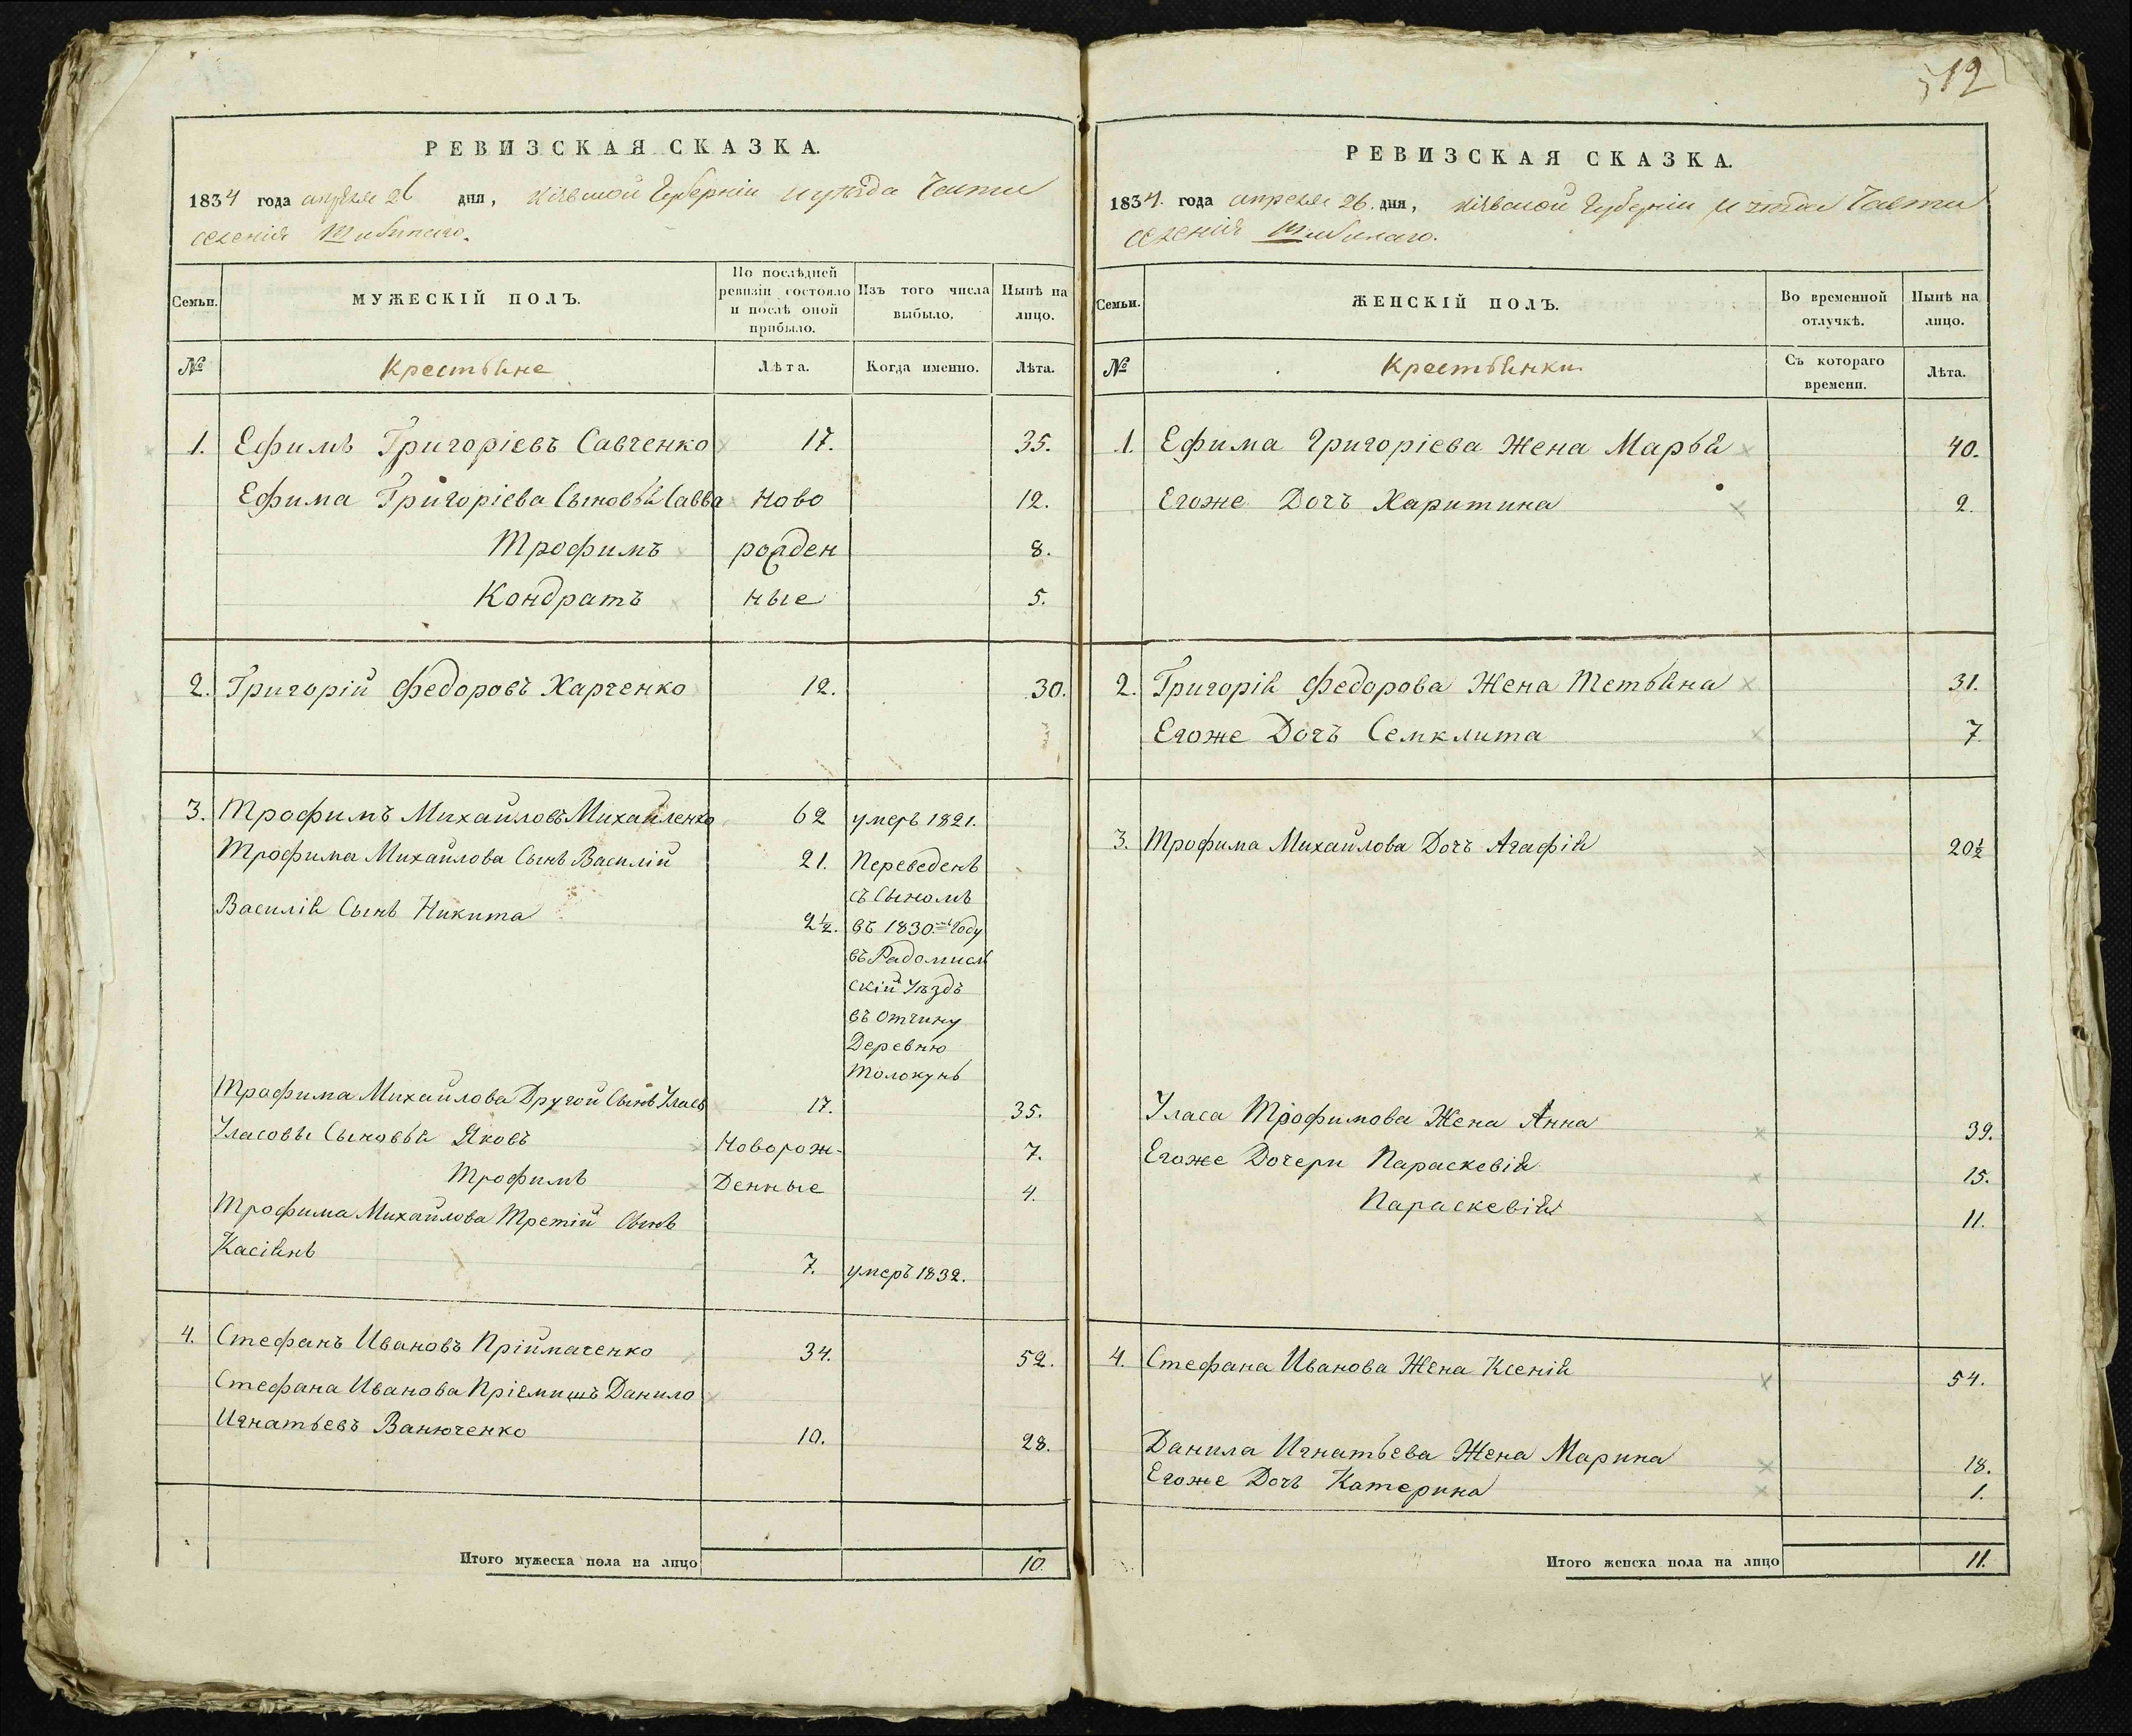 12
РЕВИЗСКАЯ СКАЗКА.
1834 года апреля 26 дня, Кіевской Губерніи и уѣзда Части
селенія Шибинаго.
Семьи.
МУЖЕСКІЙ ПОЛЪ.
По послѣдней ревизіи состояло и послѣ оной прибыло.
Изъ того числа выбыло.
Нынѣ на лицо.
№
Крестьяне
Лѣта.
Когда именно.
Лѣта.
1. Ефимъ Григоріевъ Савченко 17. 35.
Ефима Григоріева Сыновья Савва Ново 12.
Трофимъ рожден 8.
Кондратъ ные 5.
2. Григорій Федоровъ Харченко 12. 30.
3. Трофимъ Михайловъ Михайленко 62 умеръ 1821.
Трофима Михайлова Сынъ Василій 21. Переведенъ
съ Сыномъ
Василія Сынъ Никита 2½. въ 1830.мъ Году
въ Радомисл
скій Уѣздъ
въ отчину
Деревню
Толокунь
Трофима Михайлова Другой Сынъ Уласъ 17. 35.
Уласовы Сыновья Яковъ Новорож- 7.
Трофимъ Денные 4.
Трофима Михайлова Третій Сынъ
Касіянъ 7. умеръ 1832.
4. Стефанъ Ивановъ Пріймаченко 34. 52.
Стефана Иванова Пріемишъ Данило
Игнатьевъ Ванюченко 10. 28.
Итого мужеска пола на лицо 10.
РЕВИЗСКАЯ СКАЗКА.
1834. года апреля 26. дня, Кіевской Губерніи и уѣзда Части
селенія Шибинаго.
Семьи.
ЖЕНСКІЙ ПОЛЪ.
Во временной отлучкѣ.
Нынѣ на лицо.
№
Крестьянки.
Съ котораго времени.
Лѣта.
1. Ефима Григоріева Жена Марья 40.
Егоже Дочъ Харитина 2.
2. Григорія Федорова Жена Тетьяна 31.
Егоже Дочъ Семклита 7.
3. Трофима Михайлова Дочъ Агафія 20½
Уласа Трофимова Жена Анна 39.
Егоже Дочери Параскевія 15.
Параскевія 11.
4. Стефана Иванова Жена Ксенія 54.
Данила Игнатьева Жена Марина 18.
Егоже Дочъ Катерина 1.
Итого женска пола на лицо 11.